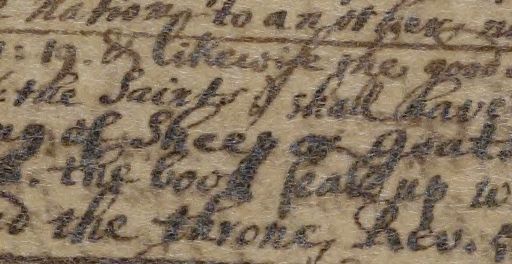 Nation to another, 
: 12. & likewise the good
the Saints shall have
of Sheep or Goats
. the book seald up w
the throne, Rev.